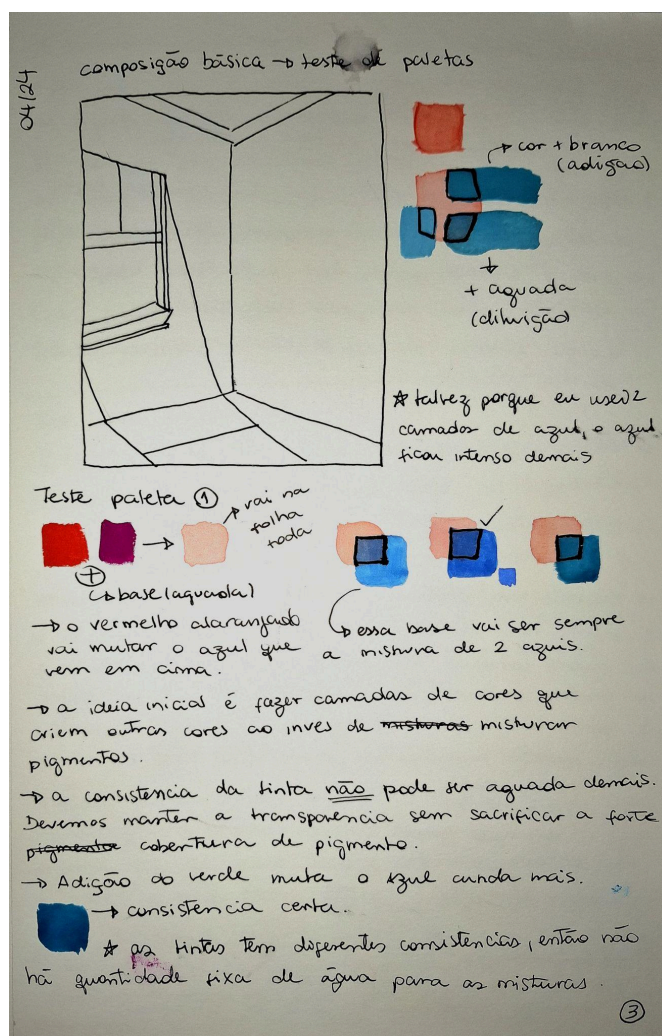 04/24
composição básica → teste de paletas
→ cor + branco
(adição)
+ aguada
(diluição)
☆ talvez porque eu usei 2
camadas de azul, o azul
ficou intenso demais
Teste paleta ①
→ vai na
folha
toda
+
→ base (aguada)
→ o vermelho alaranjado
vai mutar o azul que
vem em cima.
→ essa base vai ser sempre
a mistura de 2 azuis.
→ a ideia inicial é fazer camadas de cores que
criem outras cores ao inves de misturas misturar
pigmentos.
→ a consistencia da tinta não pode ser aguada demais.
Devemos manter a transparencia sem sacrificar a forte
pigmento cobertura de pigmento.
→ Adição do verde muta o azul ainda mais.
→ consistencia certa.
☆ as tintas tem diferentes consistencias, então não
há quantidade fixa de água para as misturas.
③